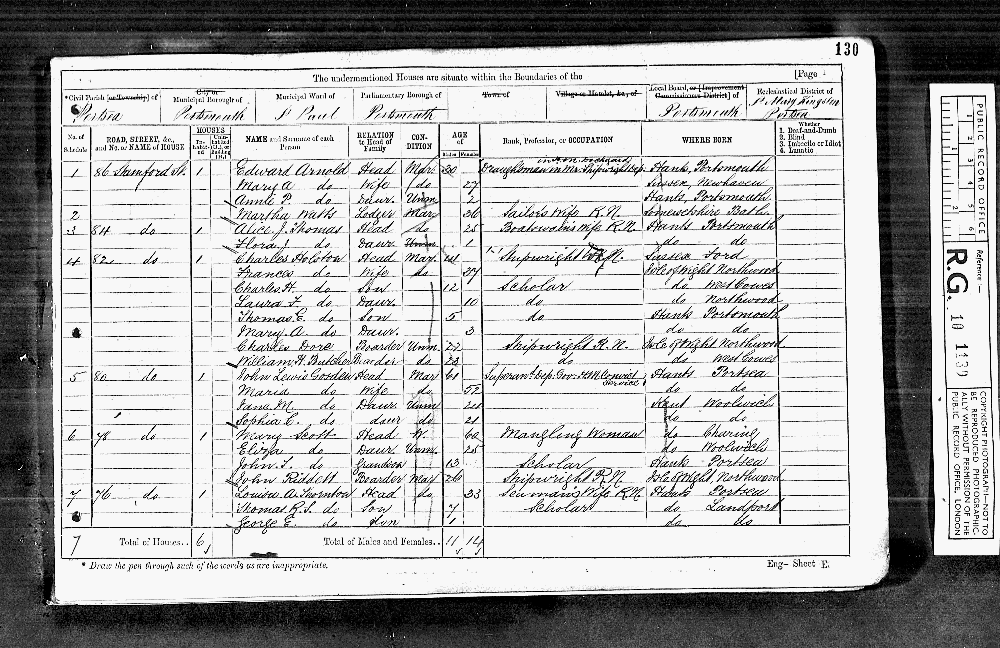 130
The undermentioned Houses are situate within the Boundaries of the [Page
*Civil Parish [or Township] of City or Municipal Borough of Municipal Ward of Parliamentary Borough of Town of Village or Hamlet, &c., of Local Board, or [Improvement Commissioners District] of Ecclesiastical District of
Portsea Portsmouth St Paul Portsmouth Portsmouth St Mary Kingston Portsea
No. of Schedule ROAD, STREET, &c., and No. or NAME of HOUSE HOUSES Inhabited Uninhabited (U.), or Building (B.) NAME and Surname of each Person RELATION to Head of Family CONDITION AGE of Males Females Rank, Profession, or OCCUPATION WHERE BORN Whether 1. Deaf-and-Dumb 2. Blind 3. Imbecile or Idiot 4. Lunatic
1 86 Stamford St. 1 Edward Arnold Head Mar. 30 Hants, Portsmouth
Mary A do Wife do 27 Sussex, Newhaven
Annie P. do Daur. Unm 2 Hants, Portsmouth
2 Martha Watts Lodger Mar 26 Sailors Wife R.N. Somersetshire Bath
3 84 do 1 Alice J. Thomas Head do 25 Boatswains Wife R.N. Hants Portsmouth
Flora J do Daur Unm 1 do do
4 82 do 1 Charles Holston Head Mar. 41 Shipwright R.N. Sussex Ford
Frances do Wife do 27 Isle of Wight Northwood
Charles H. do Son 12 Scholar do West Cowes
Laura F. do Daur. 10 do do Northwood
Thomas E. do Son 5 do Hants Portsmouth
Mary A. do Daur. 3 do do
Charles Dore Boarder Unm. 22 Shipwright R.N. Isle of Wight Northwood
William H. Butcher Boarder do 23 do do West Cowes
5 80 do 1 John Lewis Gosden Head Mar 61 Hants Portsea
Maria do Wife do 52 do do
Jane M. do Daur Unm 24 Kent Woolwich
Sophia C. do daur do 21 do do
6 78 do 1 Mary Scott Head W. 60 Mangling Woman do Charing
Eliza do Daur Unm. 25 do Woolwich
John T. do Grandson 13 Scholar Hants Portsea
John Riddett Boarder Mar 26 Shipwright R.N. Isle of Wight, Northwood
7 76 do 1 Louisa A. Thornton Head do 23 Seumans Wife R.N. Hants Portsea
Thomas R. S. do Son 7 Scholar do Landport
George E. do Son 1 do do
7 Total of Houses.. 6 Total of Males and Females.. 11 14
* Draw the pen through such of the words as are inappropriate. Eng– Sheet E.
PUBLIC RECORD OFFICE
1 2 3 4 5 6
Reference:–
R.G. 10 1130
COPYRIGHT PHOTOGRAPH—NOT TO BE REPRODUCED PHOTOGRAPHICALLY WITHOUT PERMISSION OF THE PUBLIC RECORD OFFICE, LONDON